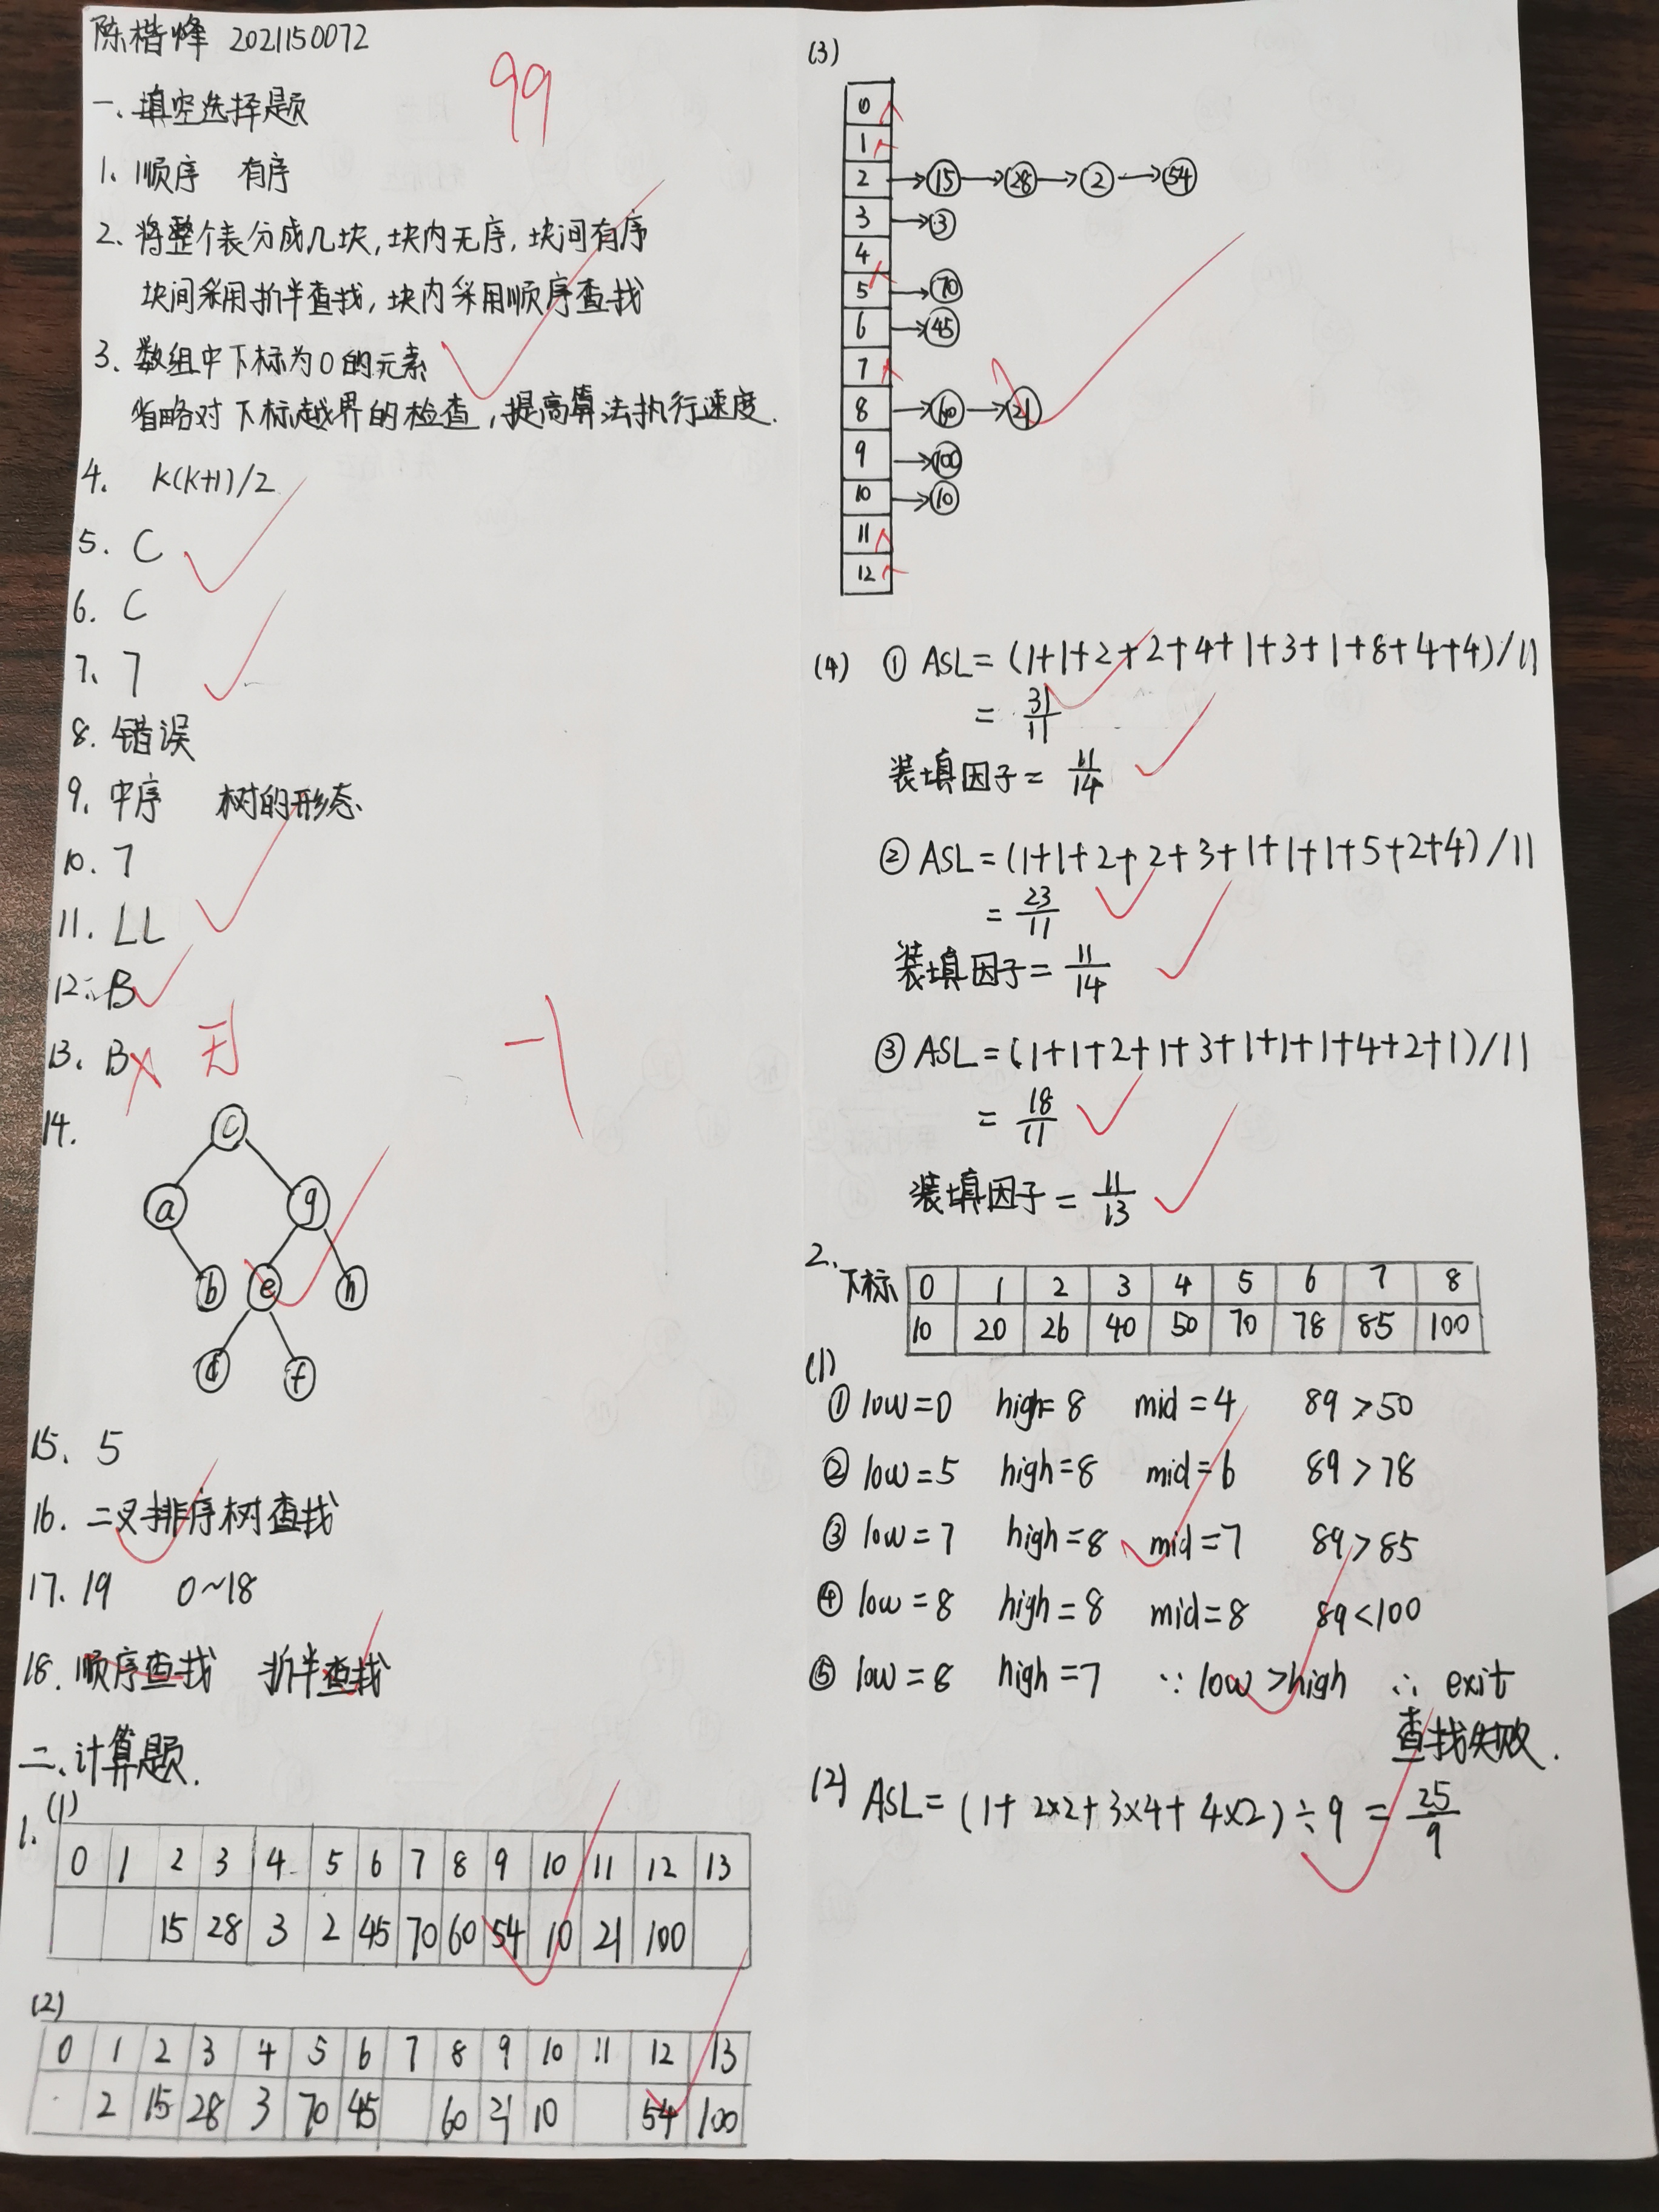 陈楷烽 2021150072
99
一、填空选择题
1、顺序 有序
2、将整个表分成几块,块内无序,块间有序
块间采用折半查找,块内采用顺序查找
3、数组中下标为0的元素
省略对下标越界的检查,提高算法执行速度.
4. K(K+1)/2
5. C
6. C
7、7
8. 错误
9、中序 树的形态
10. 7
11. LL
12: B
13、B
-1
14.
c
a g
b e h
d f
15、5
16. 二叉排序树查找
17. 19 0~18
18. 顺序查找 折半查找
二、计算题.
1. (1)
0 1 2 3 4 5 6 7 8 9 10 11 12 13
15 28 3 2 45 70 60 54 10 21 100
(2)
0 1 2 3 4 5 6 7 8 9 10 11 12 13
2 15 28 3 70 45 60 21 10 54 100
(3)
0
1
2 → 15 → 28 → 2 → 54
3 → 3
4
5 → 70
6 → 45
7
8 → 60 → 21
9 → 100
10 → 10
11
12
(4) ① ASL= (1+1+2+2+4+1+3+1+8+4+4)/11
= 31/11
装填因子= 11/14
② ASL=(1+1+2+2+3+1+1+1+5+2+4)/11
= 23/11
装填因子= 11/14
③ ASL=(1+1+2+1+3+1+1+1+4+2+1)/11
= 18/11
装填因子= 11/13
2、下标 0 1 2 3 4 5 6 7 8
10 20 26 40 50 70 78 85 100
(1)
① low=0 high=8 mid=4 89>50
② low=5 high=8 mid=6 89>78
③ low=7 high=8 mid=7 89>85
④ low=8 high=8 mid=8 89<100
⑤ low=8 high=7 ∵ low>high ∴ exit
查找失败.
(2) ASL=(1+2×2+3×4+4×2)÷9=25/9